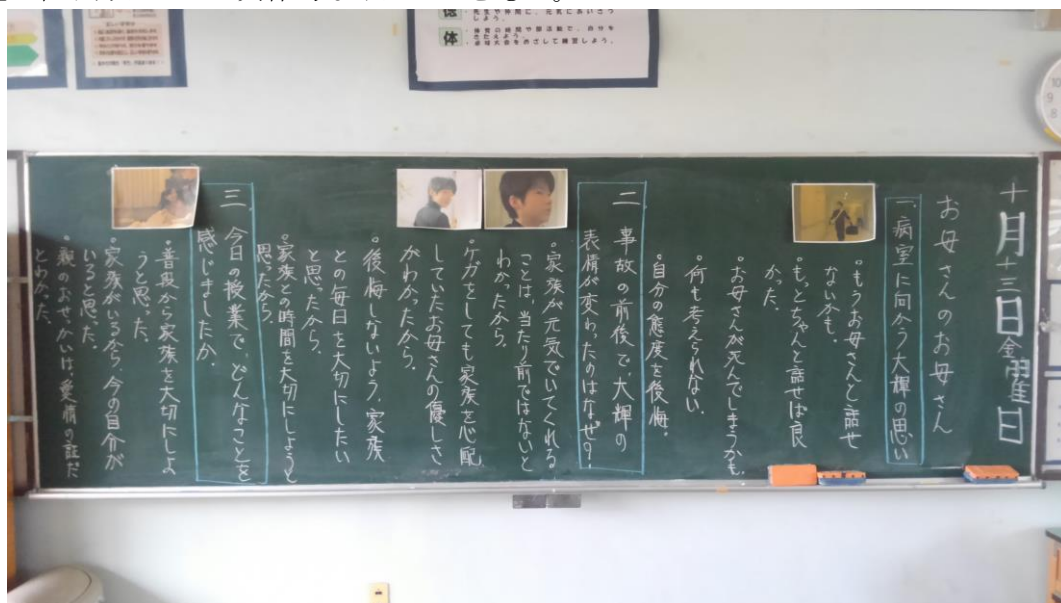 十月十三日金曜日
お母さんのお母さん
一.病室に向かう大輝の思い
・もうお母さんと話せ
ないかも。
・もっとちゃんと話せば良
かった。
・お母さんが死んでしまうかも。
・何も考えられない。
・自分の態度を後悔。
二 事故の前後で、大輝の
表情が変わったのはなぜ?
・家族が元気でいてくれる
ことは、当たり前ではないと
わかったから。
・ケガをしても家族を心配
していたお母さんの優しさ
がわかったから。
・後悔しないよう、家族
との毎日を大切にしたい
と思ったから。
・家族との時間を大切にしようと
思ったから。
三.今日の授業で、どんなことを
感じましたか。
・普段から家族を大切にしよ
うと思った。
・家族がいるから、今の自分が
いると思った。
・親のおせっかいは、愛情の証だ
とわかった。
体
・体育の時間や部活動で、自分を
きたえよう。
10
9
8